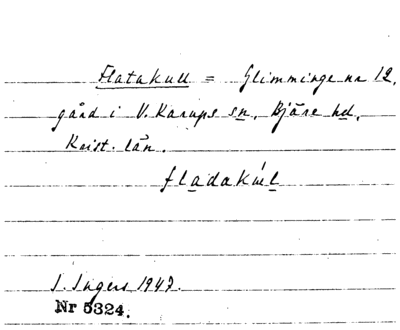 Flatakull = Glimminge nr 12,
gård i V. Karups sn, Bjäre hd,
Krist. län.
fladakúl
I. Ingers 1947.
Nr 5324.